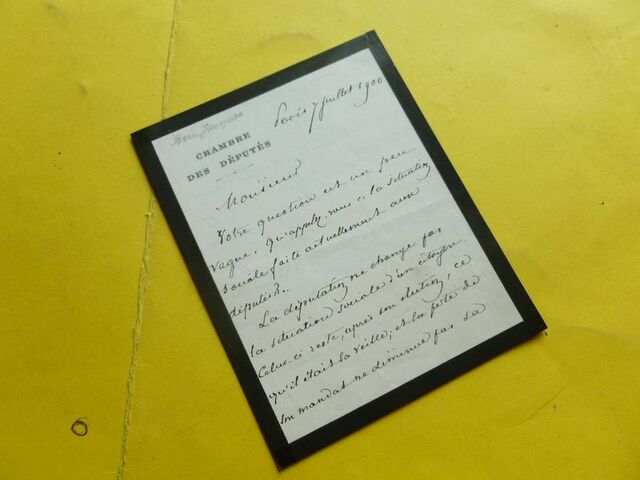 Paris 7 juillet 1900
CHAMBRE
DES DÉPUTÉS
Monsieur
Votre question est un peu
vague. Qu'appelez vous « la situation
sociale faite actuellement aux
députés ».
La députation ne change pas
la situation sociale d'un citoyen.
Celui-ci reste, après son élection, ce
qu'il était la veille; et la perte de
son mandat ne diminue pas sa